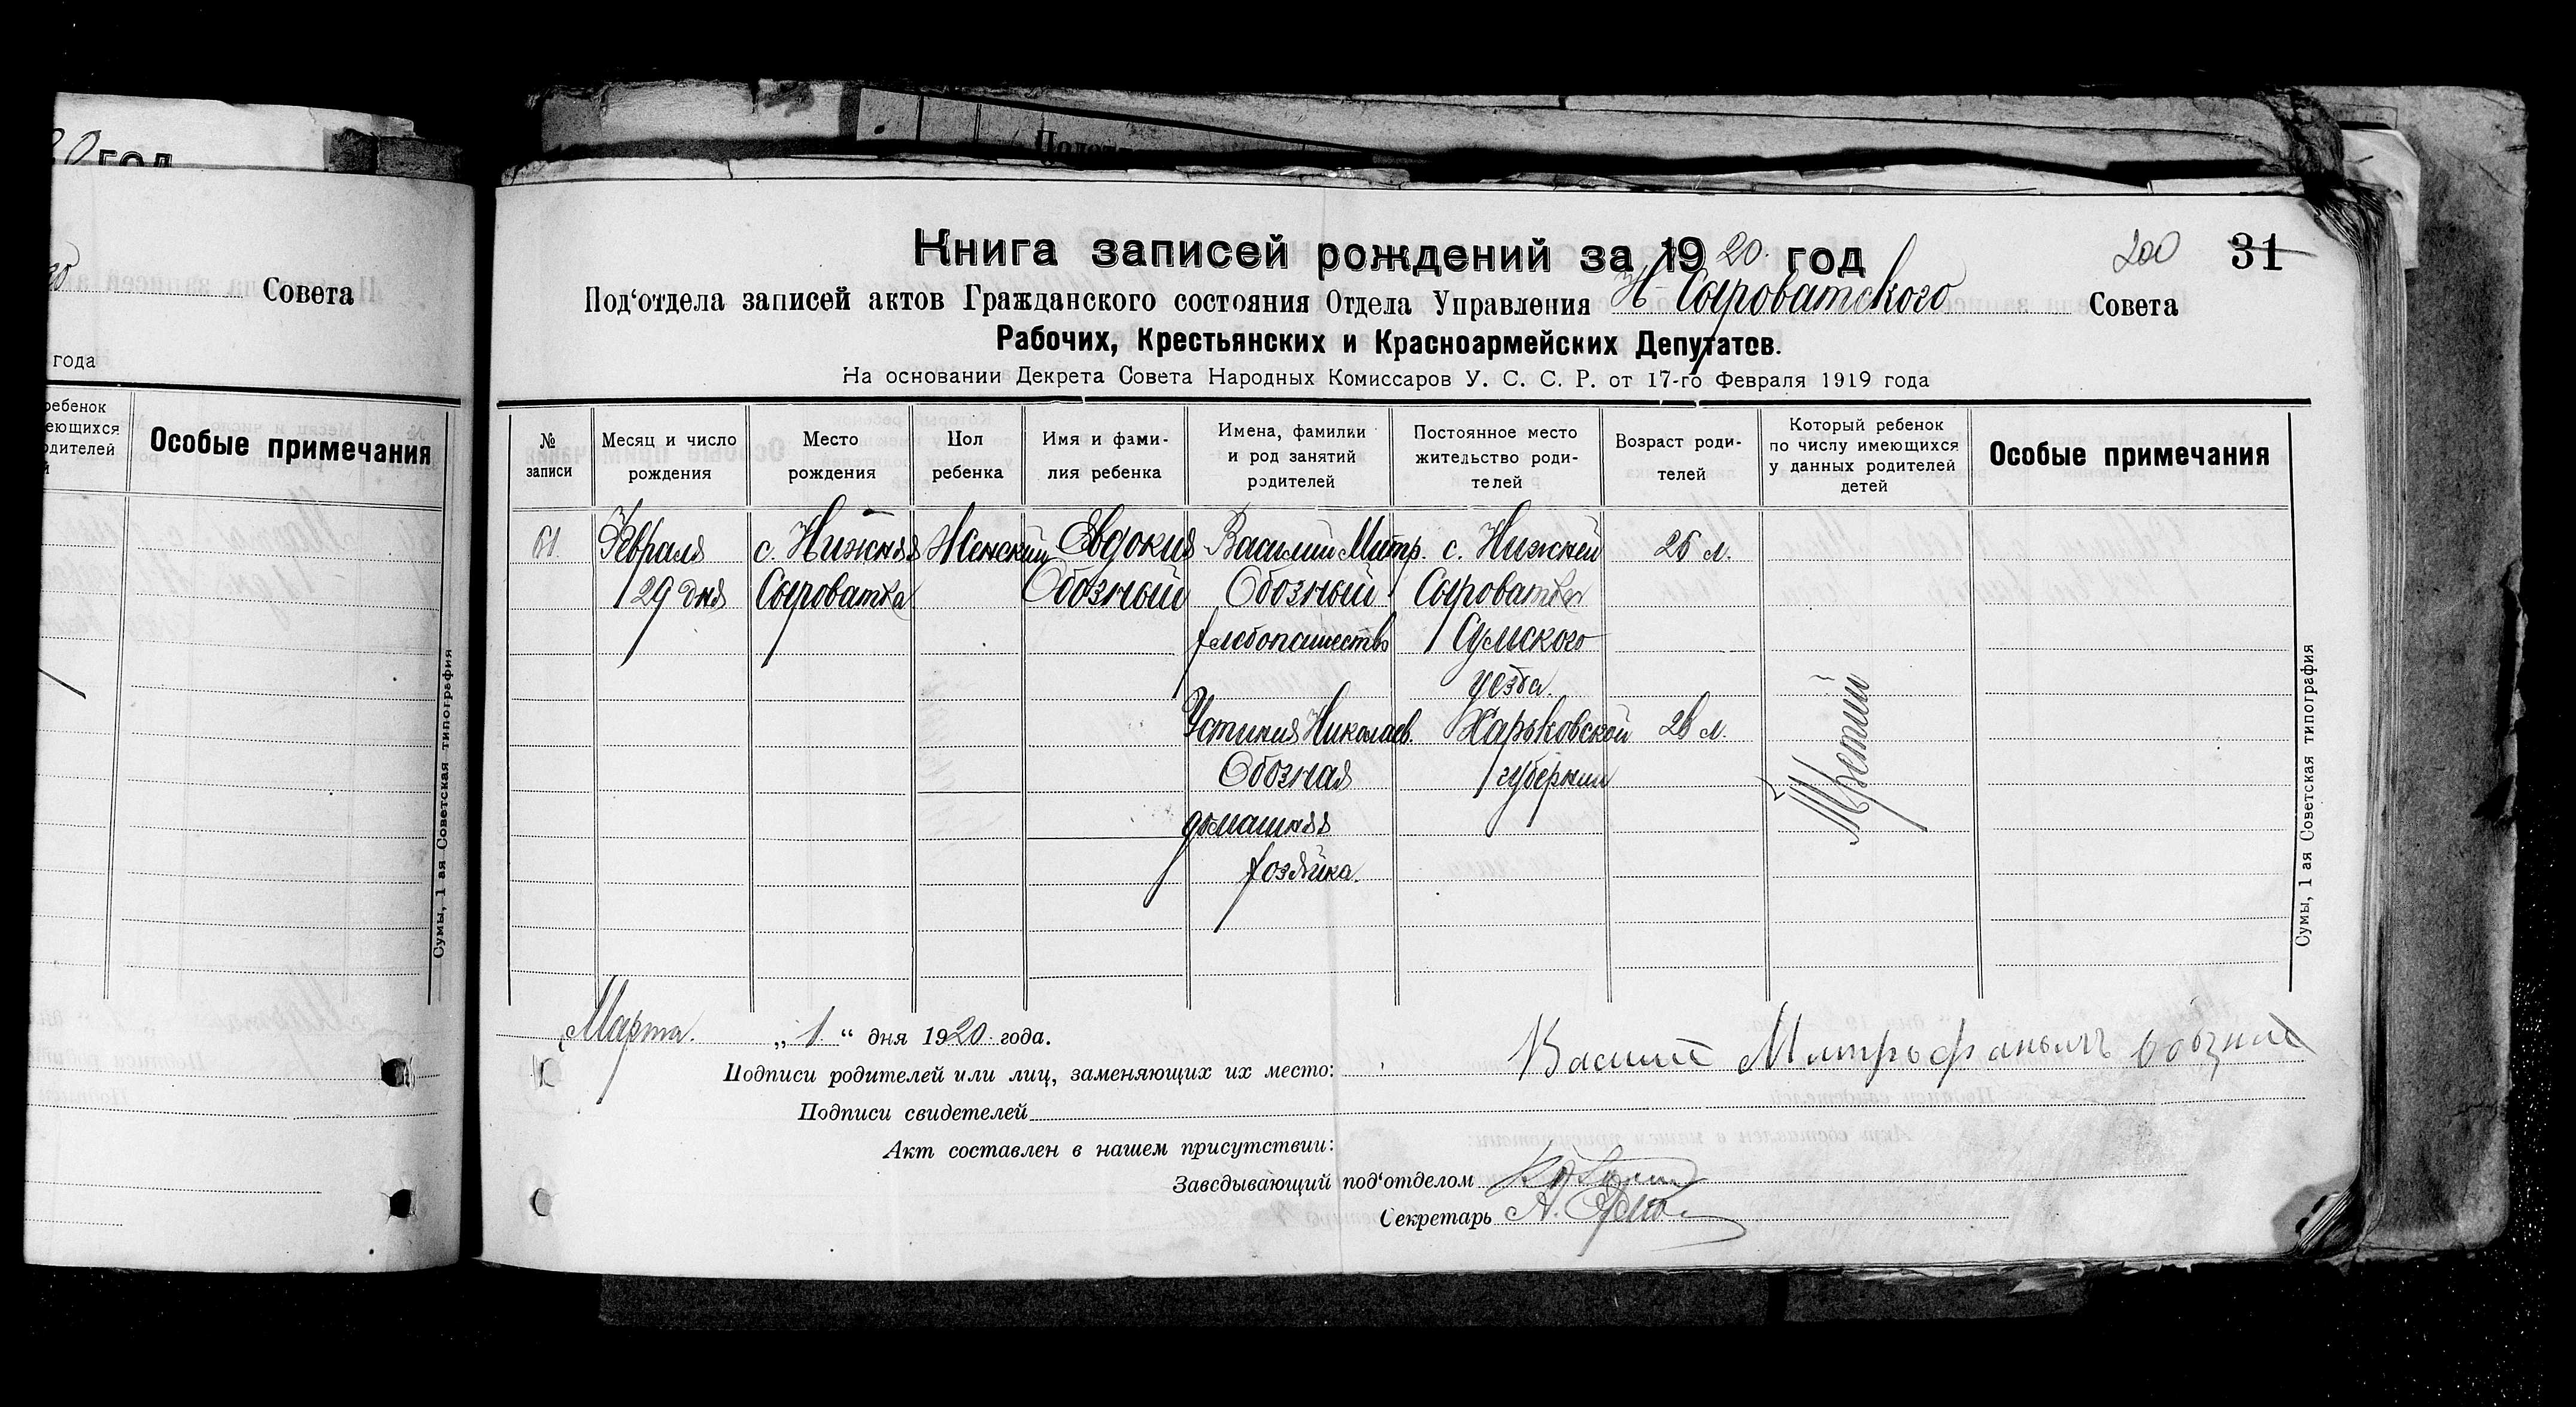 20 год
Совета
года
ребенок
еющихся
родителей
Особые примечания
Сумы, 1 ая Советская типография
Книга записей рождений за 1920 год
200 31
Под‘отдела записей актов Гражданского состояния Отдела Управления Н-Сыроватского Совета
Рабочих, Крестьянских и Красноармейских Депутатов.
На основании Декрета Совета Народных Комиссаров У. С. С. Р. от 17-го Февраля 1919 года
№ записи
Месяц и число рождения
Место рождения
Пол ребенка
Имя и фами-
лия ребенка
Имена, фамилии
и род занятий
родителей
Постоянное место
жительство роди-
телей
Возраст роди-
телей
Который ребенок
по числу имеющихся
у данных родителей
детей
Особые примечания
61
Февраля
29 дня
с. Нижняя
Сыроватка
Женский
Евдокия
Обозный
Василий Митр.
Обозный
хлебопашество
Устиния Николаев.
Обозная
домашняя
хозяйка.
с. Нижней
Сыроватки
Сумского
уезда.
Харьковской
губернии
26 л.
26 л.
Третий
Сумы, 1 ая Советская типография
Марта. „1.“ дня 1920 года.
Подписи родителей или лиц, заменяющих их место: Василий Митрофанович
Подписи свидетелей
Акт составлен в нашем присутствии:
Заведывающий под‘отделом
Секретарь А.